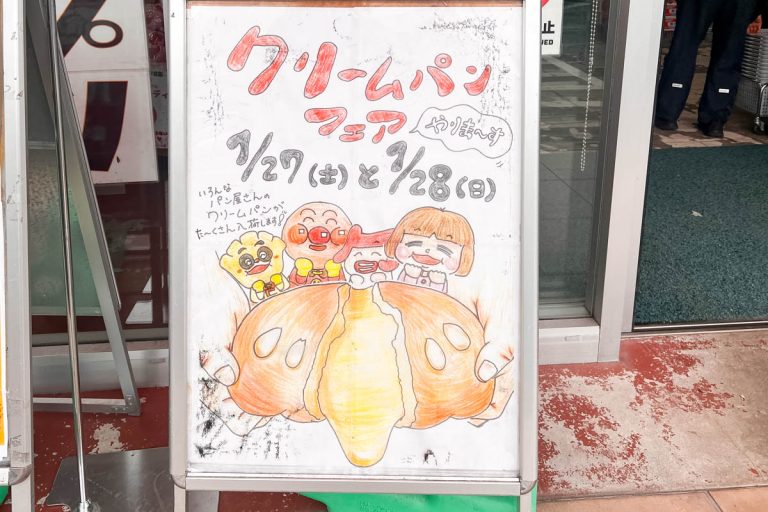 クリームパン
フェア
やりま〜す
7/27(土)と7/28(日)
いろんな
パン屋さんの
クリームパンが
た〜くさん入荷します!
止